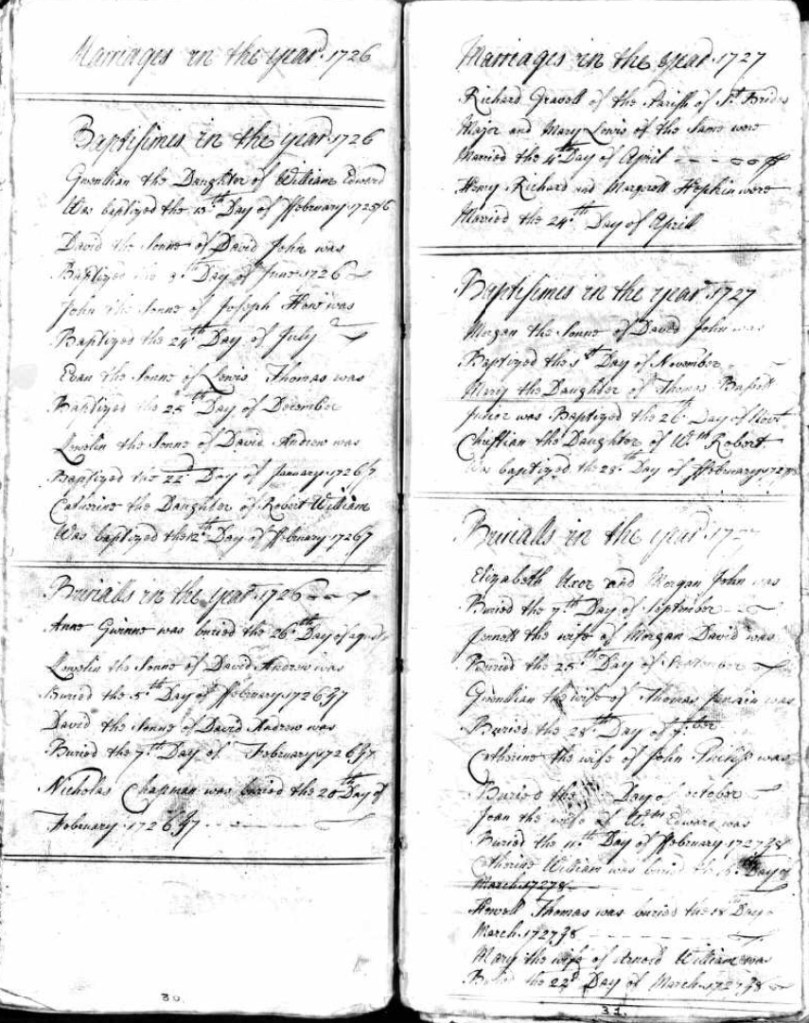 Marriages in the year 1726
Baptisimes in the year 1726
Gwenllian the Daughter of William Edward
Was baptized the 13th Day of ffebruary 1725/6
David the Sonne of David John was
Baptized the 3d Day of June 1726
John the Sonne of Joseph How was
Baptized the 24th Day of July
Evan the Sonne of Lewis Thomas was
Baptized the 25th Day of December
Lewelin the Sonne of David Andrew was
Baptized the 22d Day of January 1726/7
Catherine the Daughter of Robert William
Was baptized the 12th Day of ffebruary 1726/7
Burialls in the year 1726
Anne Gwinne was buried the 26th Day of
Lewelin the Sonne of David Andrew was
Buried the 5th Day of ffebruary 1726/7
David the Sonne of David Andrew was
Buried the 7th Day of February 1726/7
Nicholas Chapman was buried the 20th Day of
February 1726/7
30.
Marriages in the year 1727
Richard Gravell of the Parish of St. Brides
Major and Mary Lewis of the Same were
Married the 4th Day of April
Henry Richard and Margarett Hopkin were
Married the 24th Day of Aprill
Baptisimes in the year 1727
Morgan the Sonne of David John was
Baptized the 1st Day of November
Mary the Daughter of Thomas
Junior was Baptized the 26th Day of Novr
Christian the Daughter of Wm Robert
Was baptized the 28th Day of ffebruary 1727/8
Burialls in the year 1727
Elizabeth Uxor and Morgan John was
Buried the 7th Day of September
Jennett the wife of Morgan David was
Buried the 25th Day of September
Gwenllian the wife of Thomas was
Buried the 28th Day of 7ber
Catherine the wife of John Philip was
Buried the Day of october
Joan the wife of Wm Edward was
Buried the 11th Day of ffebruary 1727/8
Catherine William was buried the Day of
March 1727/8
Howell Thomas was buried the 18th Day
March 1727/8
Mary the wife of Arnold William was
Buried the 22d Day of March 1727/8
31.